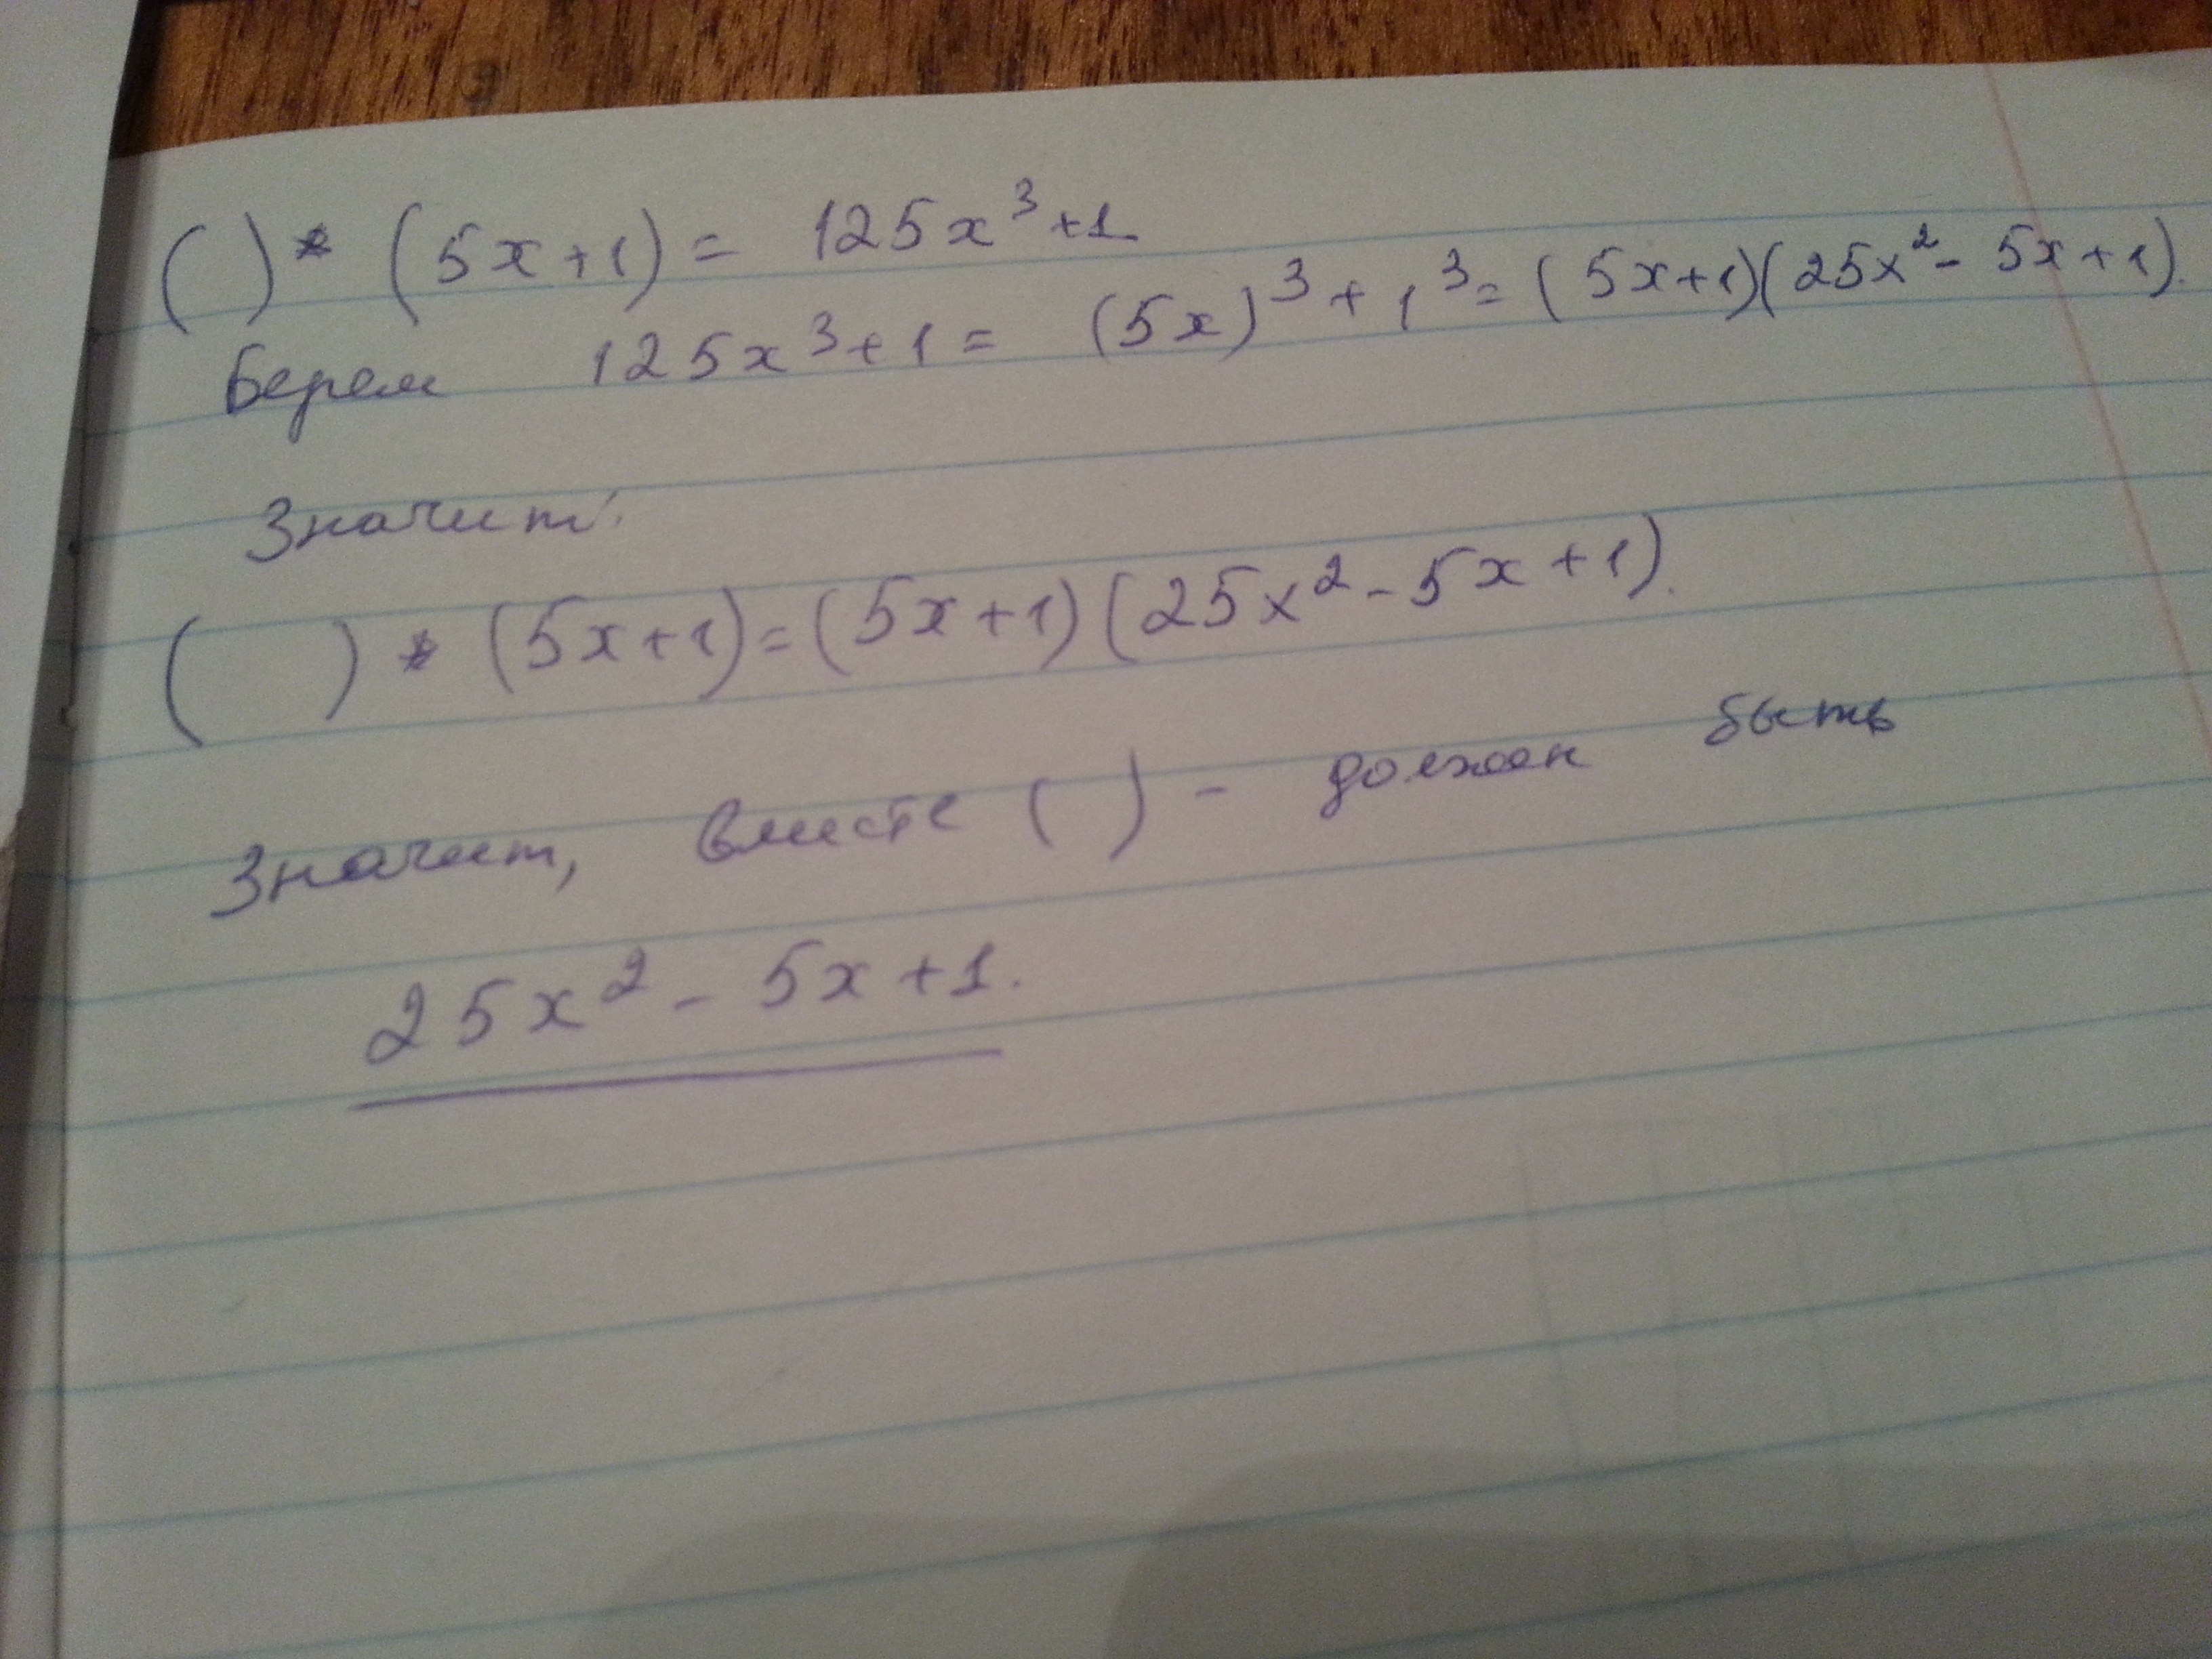 ( ) * (5x+1) = 125x³+1
Берем 125x³+1 = (5x)³+1³=(5x+1)(25x²-5x+1).
Значит:
( ) * (5x+1)=(5x+1)(25x²-5x+1).
Значит, вместе ( ) - должен быть
25x²-5x+1.